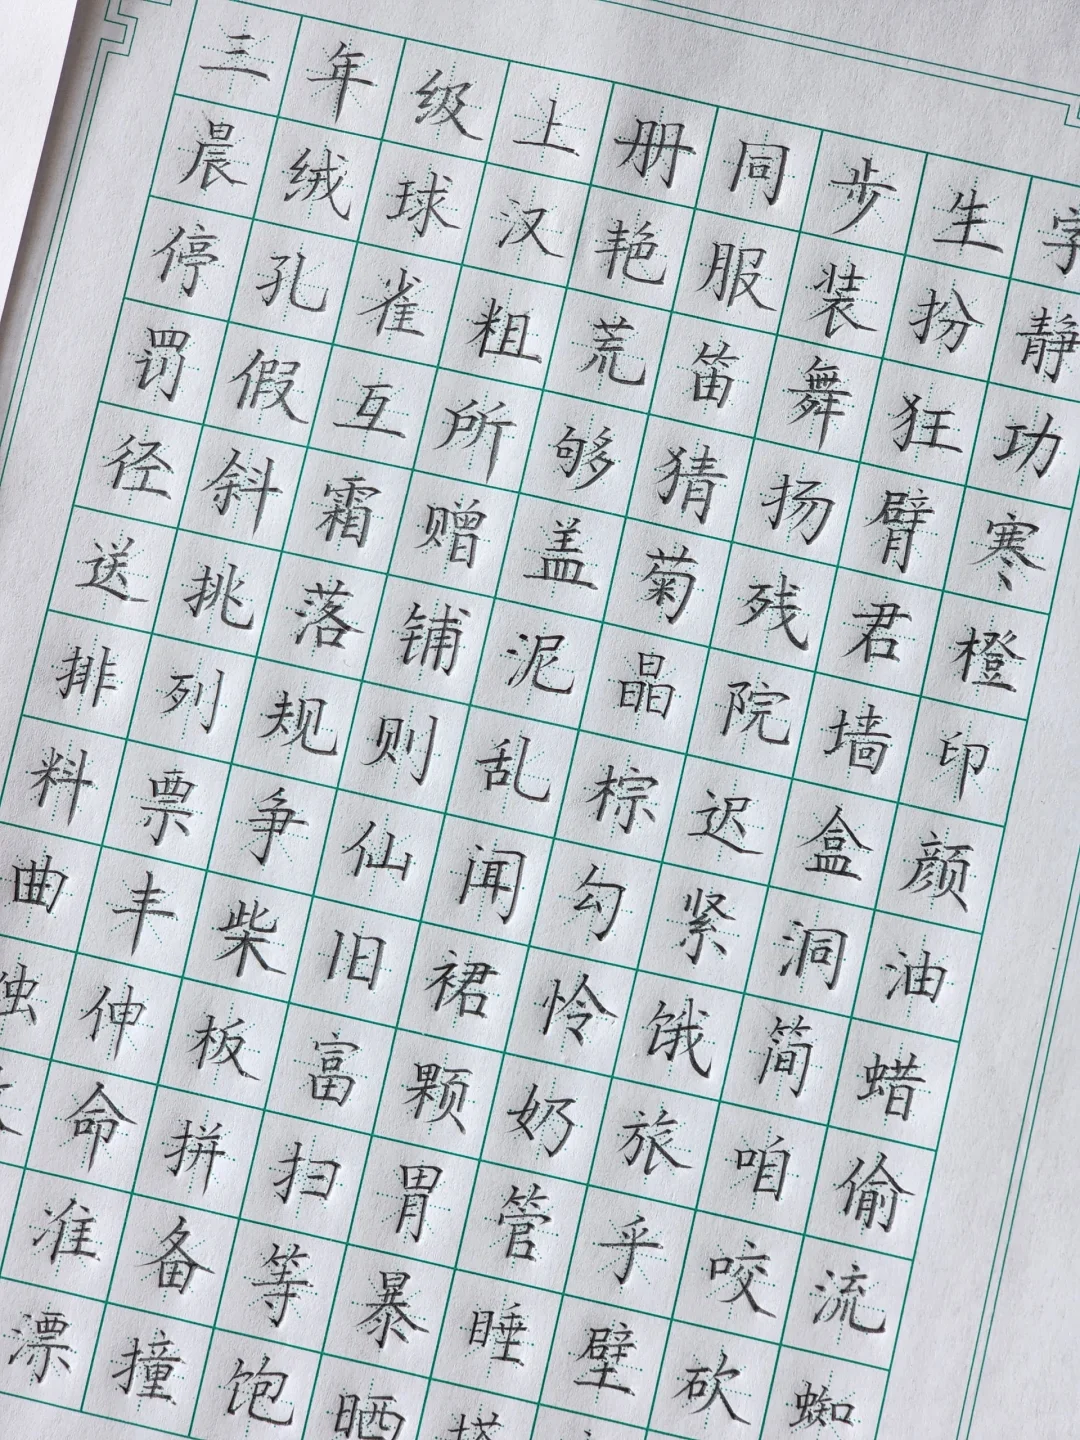 三年级上册同步生字
晨绒球汉艳服装扮静
停孔雀粗荒笛舞狂功
罚假互所够猜扬臂寒
径斜霜赠盖菊残君橙
送挑落铺泥晶院墙印
排列规则乱棕迟盒颜
料票争仙闻勾紧洞油
曲丰柴旧裙怜饿简蜡
烛伸板富颗奶旅咱偷
命拼扫胃管乎咬流
准备等暴睡壁砍蜘
漂撞饱晒搭